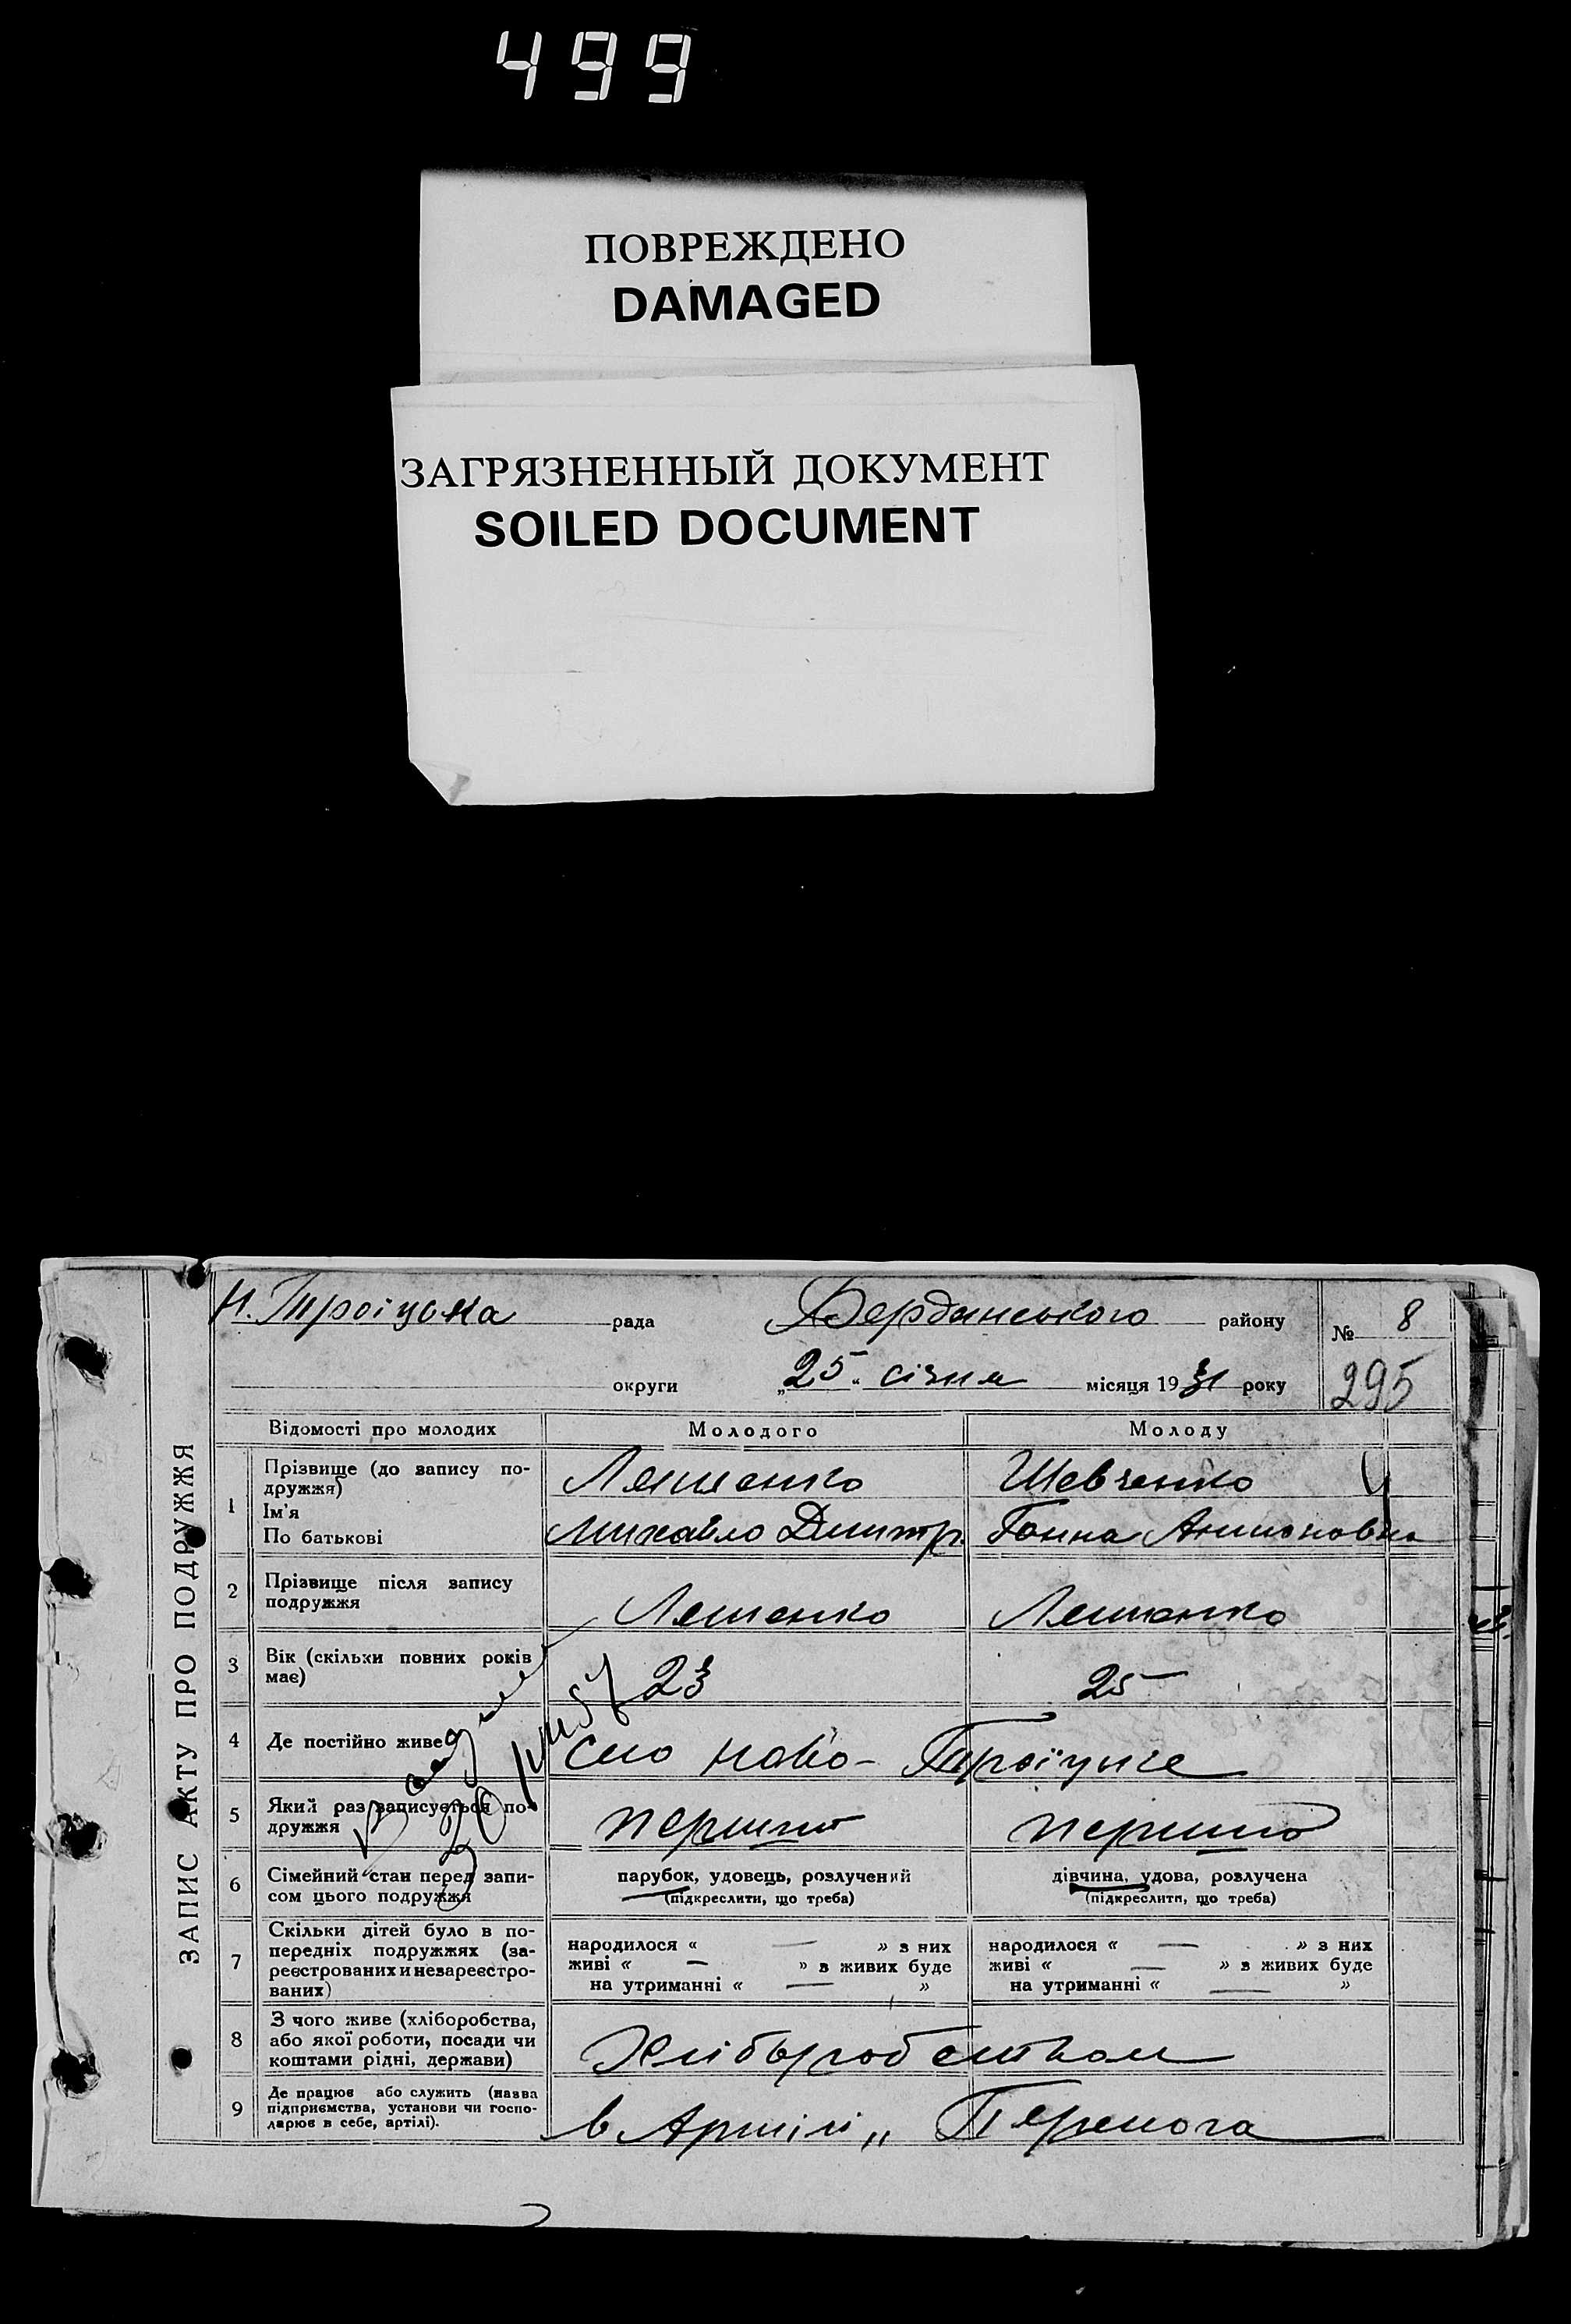 499
ПОВРЕЖДЕНО
DAMAGED
ЗАГРЯЗНЕННЫЙ ДОКУМЕНТ
SOILED DOCUMENT
ЗАПИС АКТУ ПРО ПОДРУЖЖЯ
Н. Троіцька рада Бердянського району № 8
округи „25“ січня місяця 1931 року 295
Відомості про молодих Молодого Молоду
1 Прізвище (до запису по-
дружжя) Ляшенко Шевченко
Ім'я
По батькові Михайло Дмитр. Ганна Антоновна
2 Прізвище після запису
подружжя Ляшенко Ляшенко
3 Вік (скільки повних років
має) 23 25
4 Де постійно живе село Ново-Троіцьке
5 Який раз записується по-
дружжя перший перший
6 Сімейний стан перед запи-
сом цього подружжя
парубок, удовець, розлучений дівчина, удова, розлучена
(підкреслити, що треба) (підкреслити, що треба)
7 Скільки дітей було в по-
передніх подружжях (за-
реєстрованих и незареєстро-
ваних)
народилося « — » з них народилося « — » з них
живі « — » в живих буде живі « — » в живих буде
на утриманні « — » на утриманні « — »
8 З чого живе (хліборобства,
або якої роботи, посади чи
коштами рідні, держави) Хліборобством
9 Де працює або служить (назва
підприємства, установи чи госпо-
дарює в себе, артілі). в Артілі „Перемога